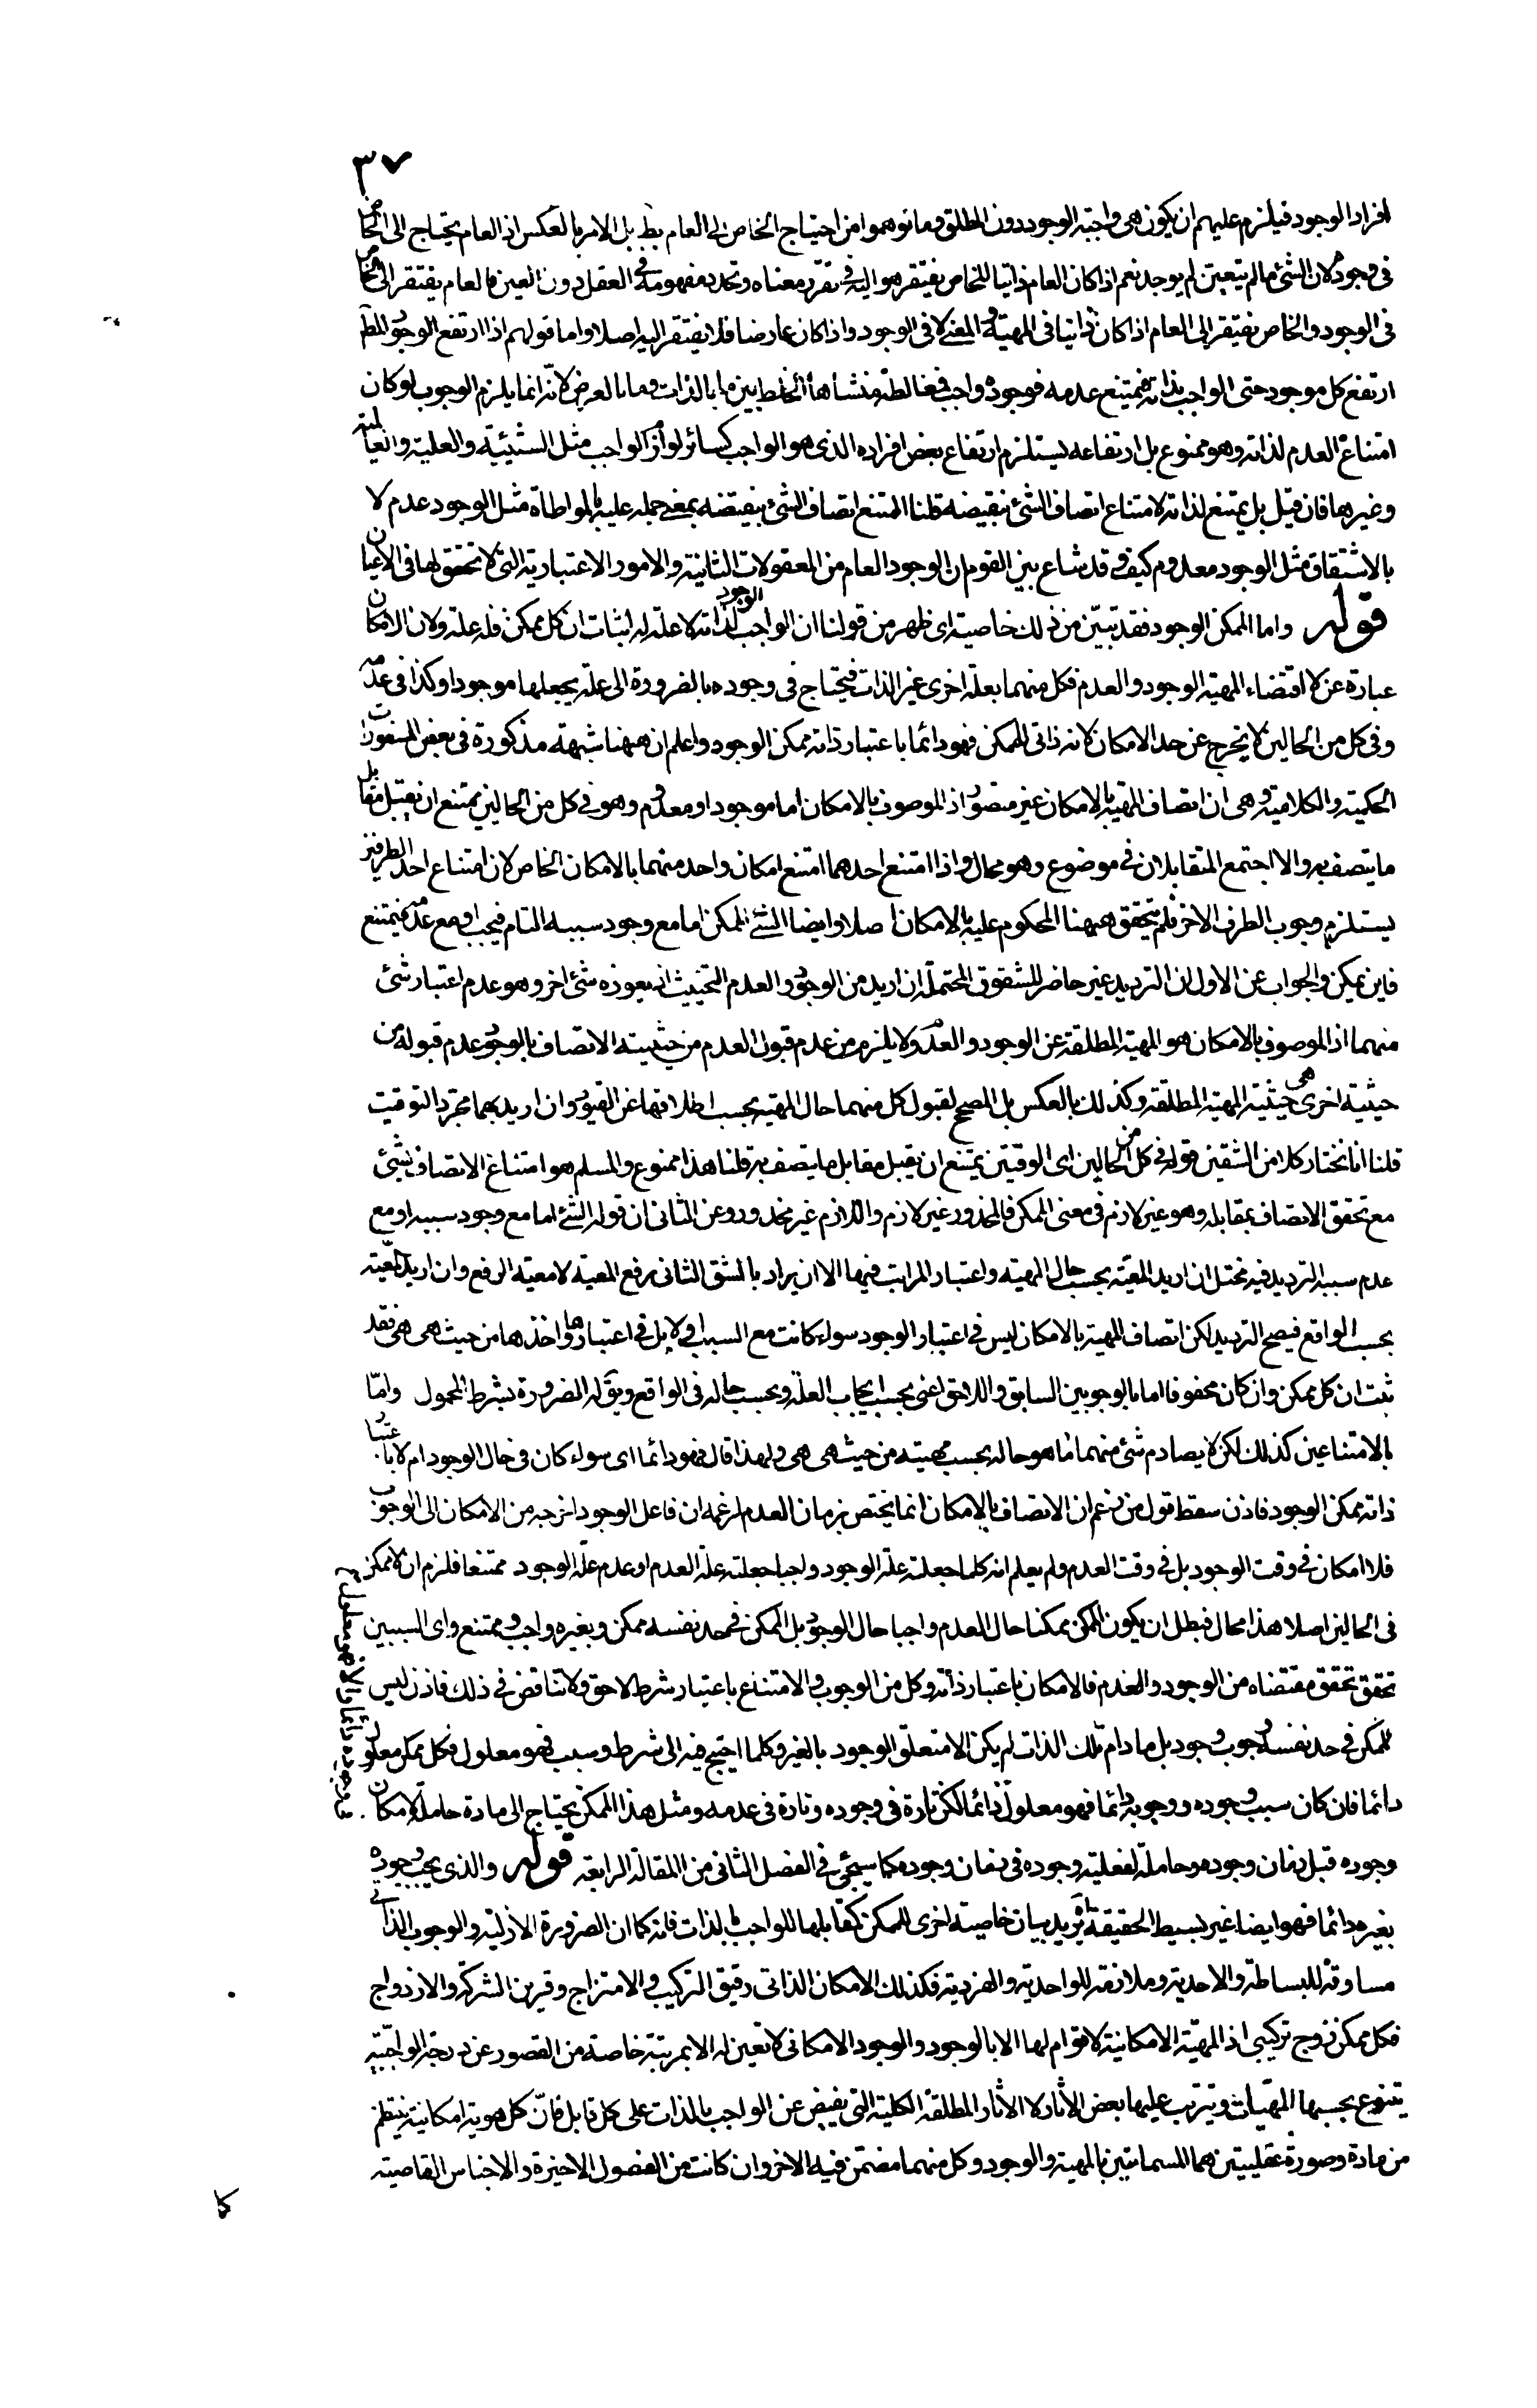 ٣٧
افراد الوجود فيلزم عليهم ان يكون هى واجبة الوجود دون المطلق وما توهموا من احتياج الخاص الى العام بط بل الامر بالعكس اذ العام يحتاج الى الخاص
فى وجوده لان الشئ ما لم يتعين لم يوجد نعم اذا كان العام ذاتيا للخاص يفتقر هو اليه فى تقرر معناه وتحدد مفهومه فى العقل دون العين فالعام يفتقر الى الخاص
فى الوجود والخاص يفتقر الى العام اذا كان ذاتيا فى المهية والمعنى لا فى الوجود واذا كان عارضا فلا يفتقر اليه اصلا واما قولهم اذا ارتفع الوجود المط
ارتفع كل موجود حتى الواجب بذاته فيمتنع عدمه فوجوده واجب فمغالطة منشأها الخلط بين ما بالذات وما بالعرض لانه انما يلزم الوجوب لو كان
امتناع العدم لذاته وهو ممنوع بل ارتفاعه يستلزم ارتفاع بعض افراده الذى هو الواجب كسائر لوازم الواجب مثل الشيئية والعلية والعالمية
وغيرها فان قيل بل يمتنع لذاته لامتناع اتصاف الشئ بنقيضه قلنا الممتنع اتصاف الشئ بنقيضه بمعنى حمله عليه بالمواطاة مثل الوجود عدم لا
بالاشتقاق مثل الوجود معدوم كيف وقد شاع بين القوم ان الوجود العام من المعقولات الثانية والامور الاعتبارية التى لا تحقق لها فى الاعيان
قوله واما الممكن الوجود فقد تبين من ذلك خاصيته اى ظهر من قولنا ان الواجب الوجود لذاته لا علة له اثبات ان كل ممكن فله علة ولان الامكان
عبارة عن لا اقتضاء المهية الوجود والعدم فكل منهما بعلة اخرى غير الذات فيحتاج فى وجوده بالضرورة الى علة يجعلها موجودا وكذا فى عدمه
وفى كل من الحالين لا يخرج عن حد الامكان لانه ذاتى للممكن فهو دائما باعتبار ذاته ممكن الوجود واعلم ان ههنا شبهة مذكورة فى بعض المسفورات
الحكمية والكلامية وهى ان اتصاف المهية بالامكان غير متصور اذ الموصوف بالامكان اما موجود او معدوم وهو فى كل من الحالين يمتنع ان يقبل مقابل
ما يتصف به والا اجتمع المتقابلان فى موضوع وهو محال واذا امتنع احدهما امتنع امكان واحد منهما بالامكان الخاص لان امتناع احد الطرفين
يستلزم وجوب الطرف الاخر فلم يتحقق ههنا المحكوم عليه بالامكان اصلا وايضا الشئ الممكن اما مع وجود سببه التام فيجب او مع عدمه فيمتنع
فاين يمكن والجواب عن الاول ان الترديد غير حاضر للشقوق المحتملة ان اريد من الوجود والعدم التحييث اذ يعوزه شئ اخر وهو عدم اعتبار شئ
منهما اذ الموصوف بالامكان هو المهية المطلقة عن الوجود والعدم ولا يلزم من عدم قبول العدم من حيثية الاتصاف بالوجود عدم قبوله من
حيثية اخرى هى حيثية المهية المطلقة وكذلك بالعكس بل المصحح لقبول كل منهما حال المهية بحسب اطلاقها عن القيود وان اريد بهما مجرد التوقيت
قلنا انا نختار كلا من الشقين قوله فى كل من الحالين اى الوقتين يمتنع ان يقبل مقابل ما يتصف به قلنا هذا ممنوع والمسلم هو امتناع الاتصاف بشئ
مع تحقق الاتصاف بمقابله وهو غير لازم فى معنى الممكن فالمحذور غير لازم واللازم غير محذور وعن الثانى ان قوله الشئ اما مع وجود سببه او مع
عدم سببه الترديد فيه مختل ان اريد المعية بحسب حال المهية واعتبار المراتب فيها الا ان يراد بالشق الثانى رفع المعية لا معية الرفع وان اريد المعية
بحسب الواقع فيصح الترديد لكن اتصاف المهية بالامكان ليس فى اعتبار الوجود سواء كانت مع السبب او لا بل فى اعتبارها واخذها من حيث هى هى فقد
ثبت ان كل ممكن وان كان محفوفا اما بالوجوبين السابق واللاحق اعنى بحسب ايجاب العلة وبحسب حاله فى الواقع ويق له الضرورة بشرط المحمول واما
بالامتناعين كذلك لكن لا يصادم شئ منهما ما هو حاله بحسب مهيته من حيث هى هى ولهذا قال فهو دائما اى سواء كان فى حال الوجود ام لا باعتبار
ذاته ممكن الوجود فاذن سقط قول من زعم ان الاتصاف بالامكان انما يختص بزمان العدم لزعمه ان فاعل الوجود اخرجه من الامكان الى الوجوب
فلا امكان فى وقت الوجود بل فى وقت العدم ولم يعلم انه كلما جعلته علة الوجود واجبا جعلته علة العدم او عدم علة الوجود ممتنعا فلزم ان لا ممكن
فى الحالين اصلا هذا محال فبطل ان يكون الممكن ممكنا حال العدم واجبا حال الوجود بل الممكن فى حد نفسه ممكن وبغيره واجب وممتنع واى السببين
تحقق تحقق مقتضاه من الوجود والعدم فالامكان باعتبار ذاته وكل من الوجوب والامتناع باعتبار شرط لاحق ولا تناقض فى ذلك فاذن ليس
للممكن فى حد نفسه وجوب وجود بل ما دام تلك الذات لم يكن الا متعلق الوجود بالغير وكلما احتيج فيه الى شرط وسبب فهو معلول فكل ممكن معلول
دائما فان كان سبب وجوده ووجوبه دائما فهو معلول دائما لكن تارة فى وجوده وتارة فى عدمه ومثل هذا الممكن يحتاج الى مادة حاملة لامكان
وجوده قبل زمان وجوده وحاملة لفعلية وجوده فى زمان وجوده كما سيجئ فى الفصل الثانى من المقالة الرابعة قوله والذى يجب وجوده
بغيره دائما فهو ايضا غير بسيط الحقيقة آه يريد بيان خاصية اخرى للممكن كمقابلها للواجب بالذات فانه كما ان الضرورة الازلية والوجوب الذاتى
مساوقة للبساطة والاحدية وملازقة للواحدية والفردية فكذلك الامكان الذاتى رقيق التركيب والامتزاج وقرين الشركة والازدواج
فكل ممكن زوج تركيبى اذ المهية الامكانية لا قوام لها الا بالوجود والوجود الامكانى لا تعين له الا بمرتبة خاصة من القصور عن درجة الواجبية
يتنوع بحسبها المهيات ويترتب عليها بعض الآثار لا الآثار المطلقة الكلية التى يفيض عن الواجب بالذات على كل قابل فان كل هوية امكانية ينتظم
من مادة وصورة عقليتين هما المسماتين بالمهية والوجود وكل منهما مضمن فيه الاخر وان كانت من الفصول الاخيرة والاجناس القاصية
كا